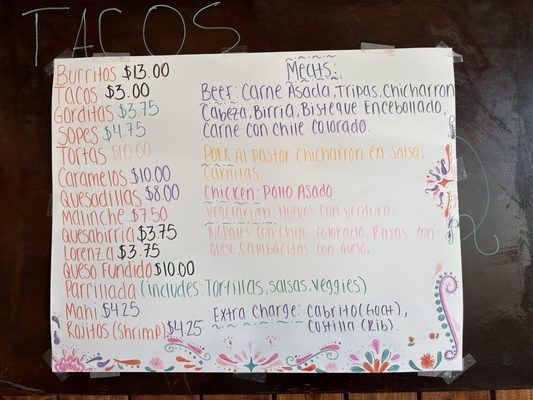 TACOS
Burritos $13.00
Tacos $3.00
Gorditas $3.75
Sopes $4.75
Tortas $10.00
Caramelos $10.00
Quesadillas $8.00
Malinche $7.50
Quesabirria $3.75
Lorenza $3.75
Queso Fundido $10.00
Parrillada (includes: Tortillas, salsas, veggies)
Mahi $4.25
Rojitos (Shrimp) $4.25
Meats:
Beef: Carne Asada, Tripas, Chicharron
Cabeza, Birria, Bisteque Encebollado,
Carne con Chile Colorado.
Pork: Al Pastor, Chicharron en salsa,
Carnitas.
Chicken: Pollo Asado
Vegetarian: Huevos con verdura,
Nopales con Chile Colorado, Rajas con-
queso, Calabacitas con queso.
Extra Charge: Cabrito (Goat),
Costilla (Rib).